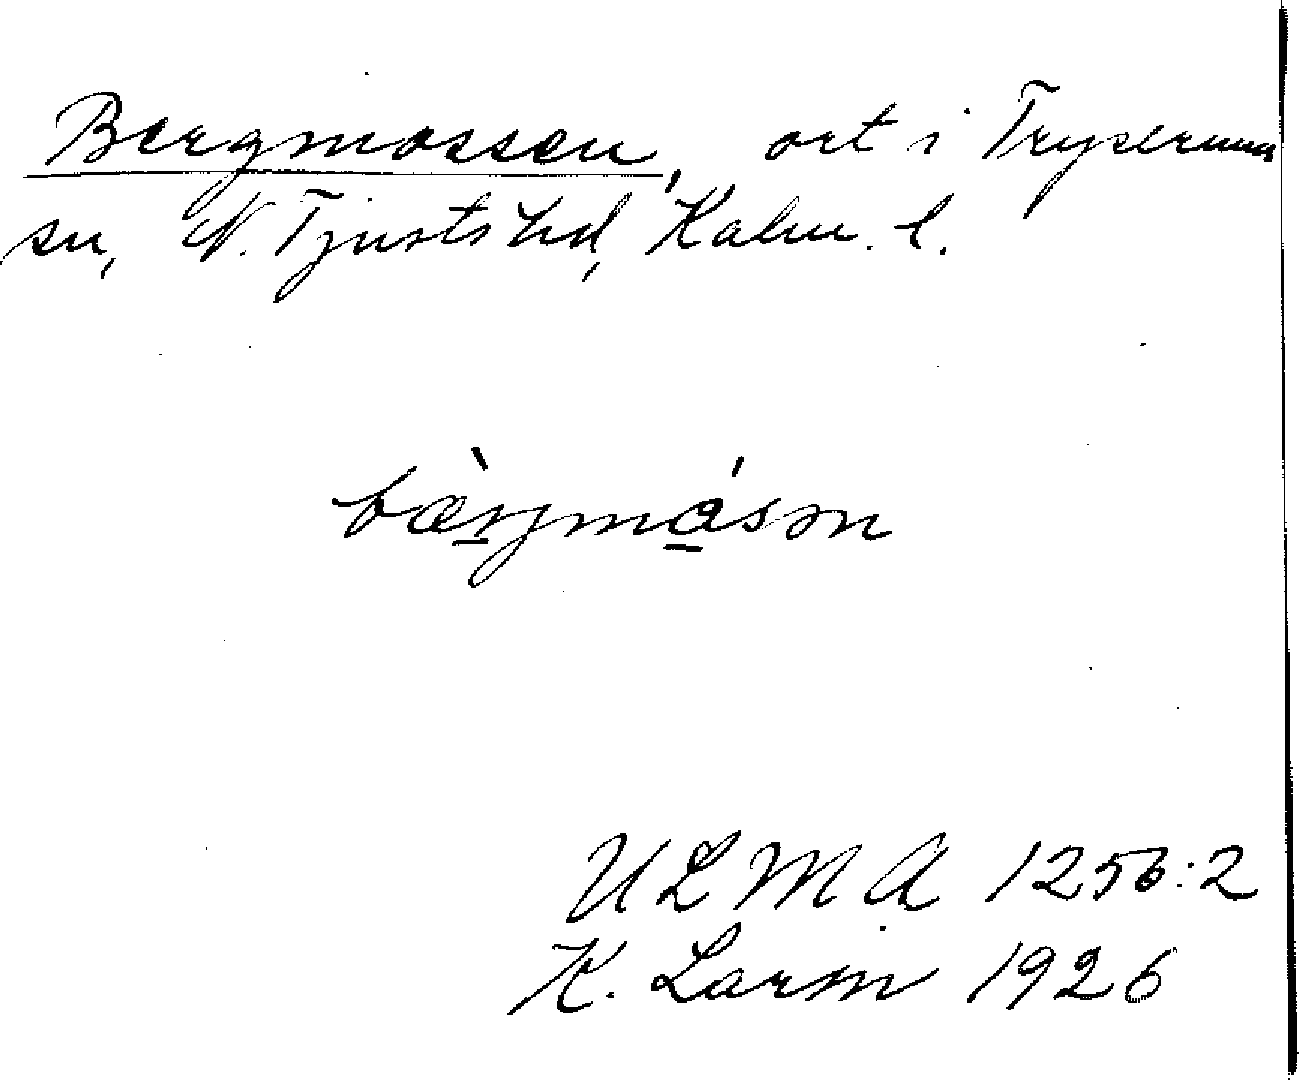 Bergmossen, ort i Tryserums
sn, N. Tjusts hd, Kalm. l.
bæ̀rjmåsən
ULMA 1256:2
K. Larm 1926